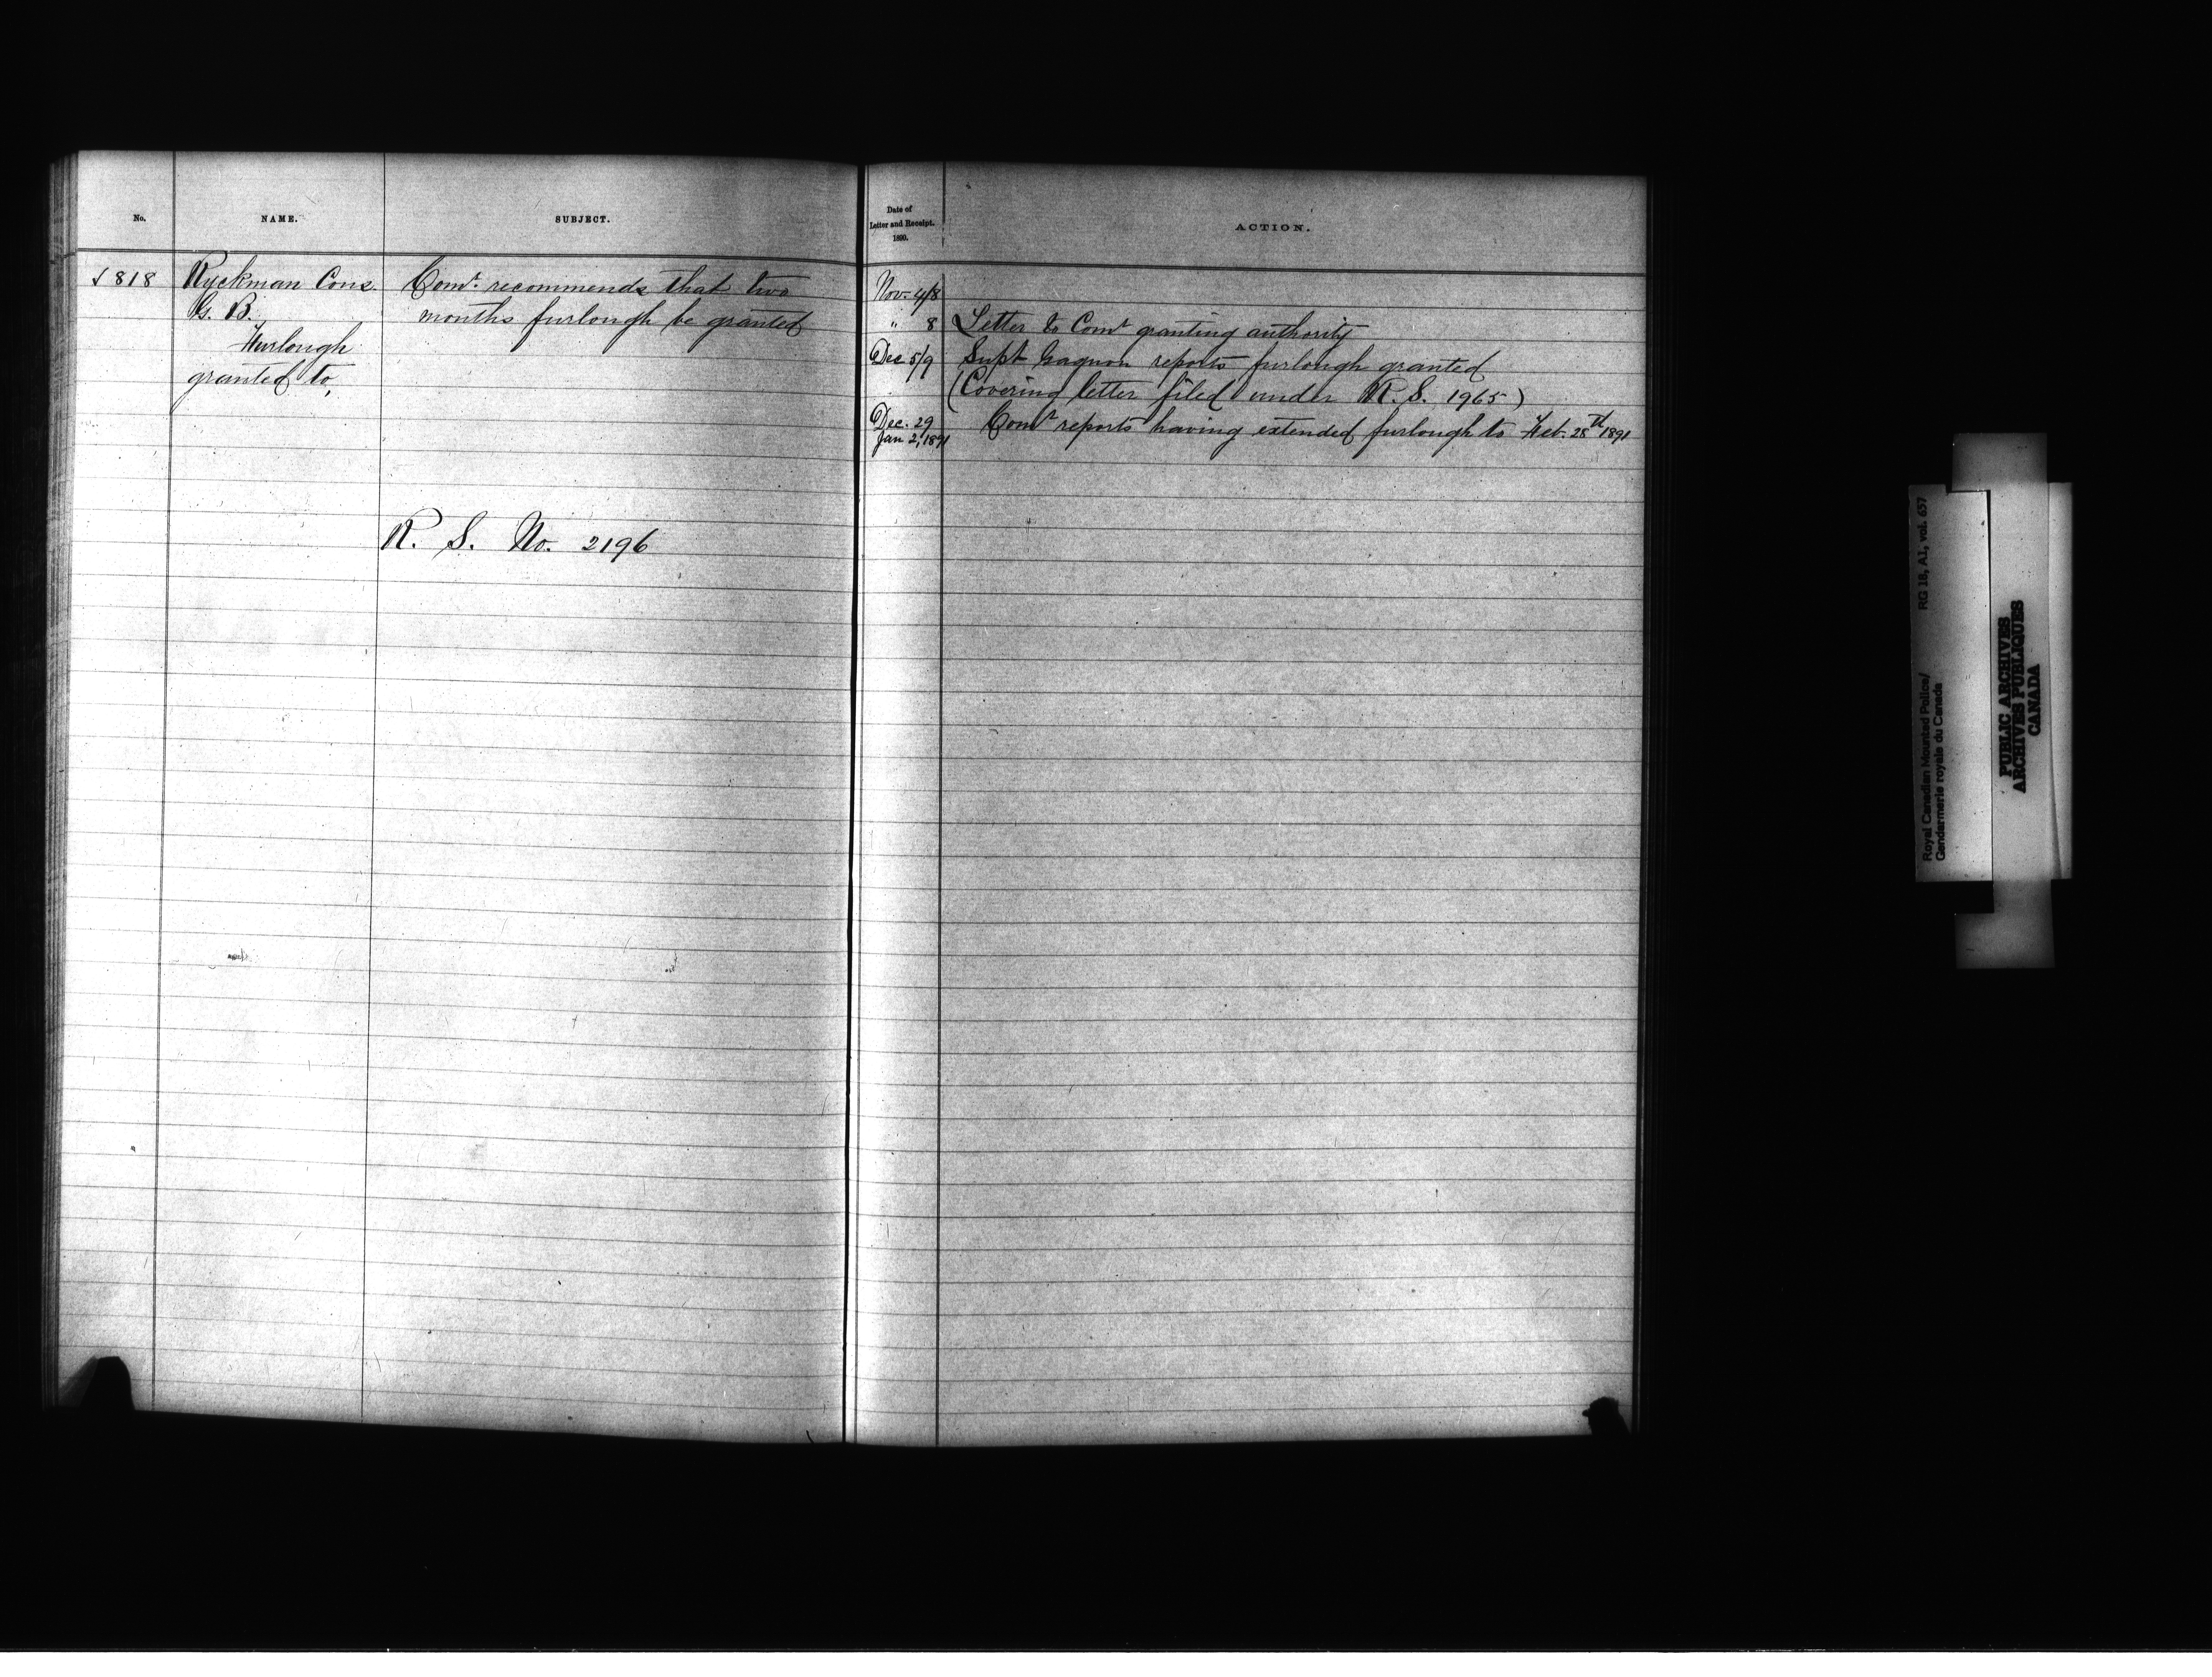 No.
NAME.
SUBJECT.
√ 818
Ryckman Cons.
G. B.
Furlough
granted to,
Comr. recommends that two
months furlough be granted
R. S. No. 2196
Date of
Letter and Receipt.
1890.
ACTION.
Nov. 4/8
" 8 Letter to Comr granting authority
Dec 5/9 Supt Gagnon reports furlough granted
(Covering letter filed under R. S. 1965)
Dec. 29 Comr reports having extended furlough to Feb. 28th 1891
Jan 2, 1891
Royal Canadian Mounted Police/ RG 18, A1, vol. 637
Gendarmerie royale du Canada
PUBLIC ARCHIVES
ARCHIVES PUBLIQUES
CANADA